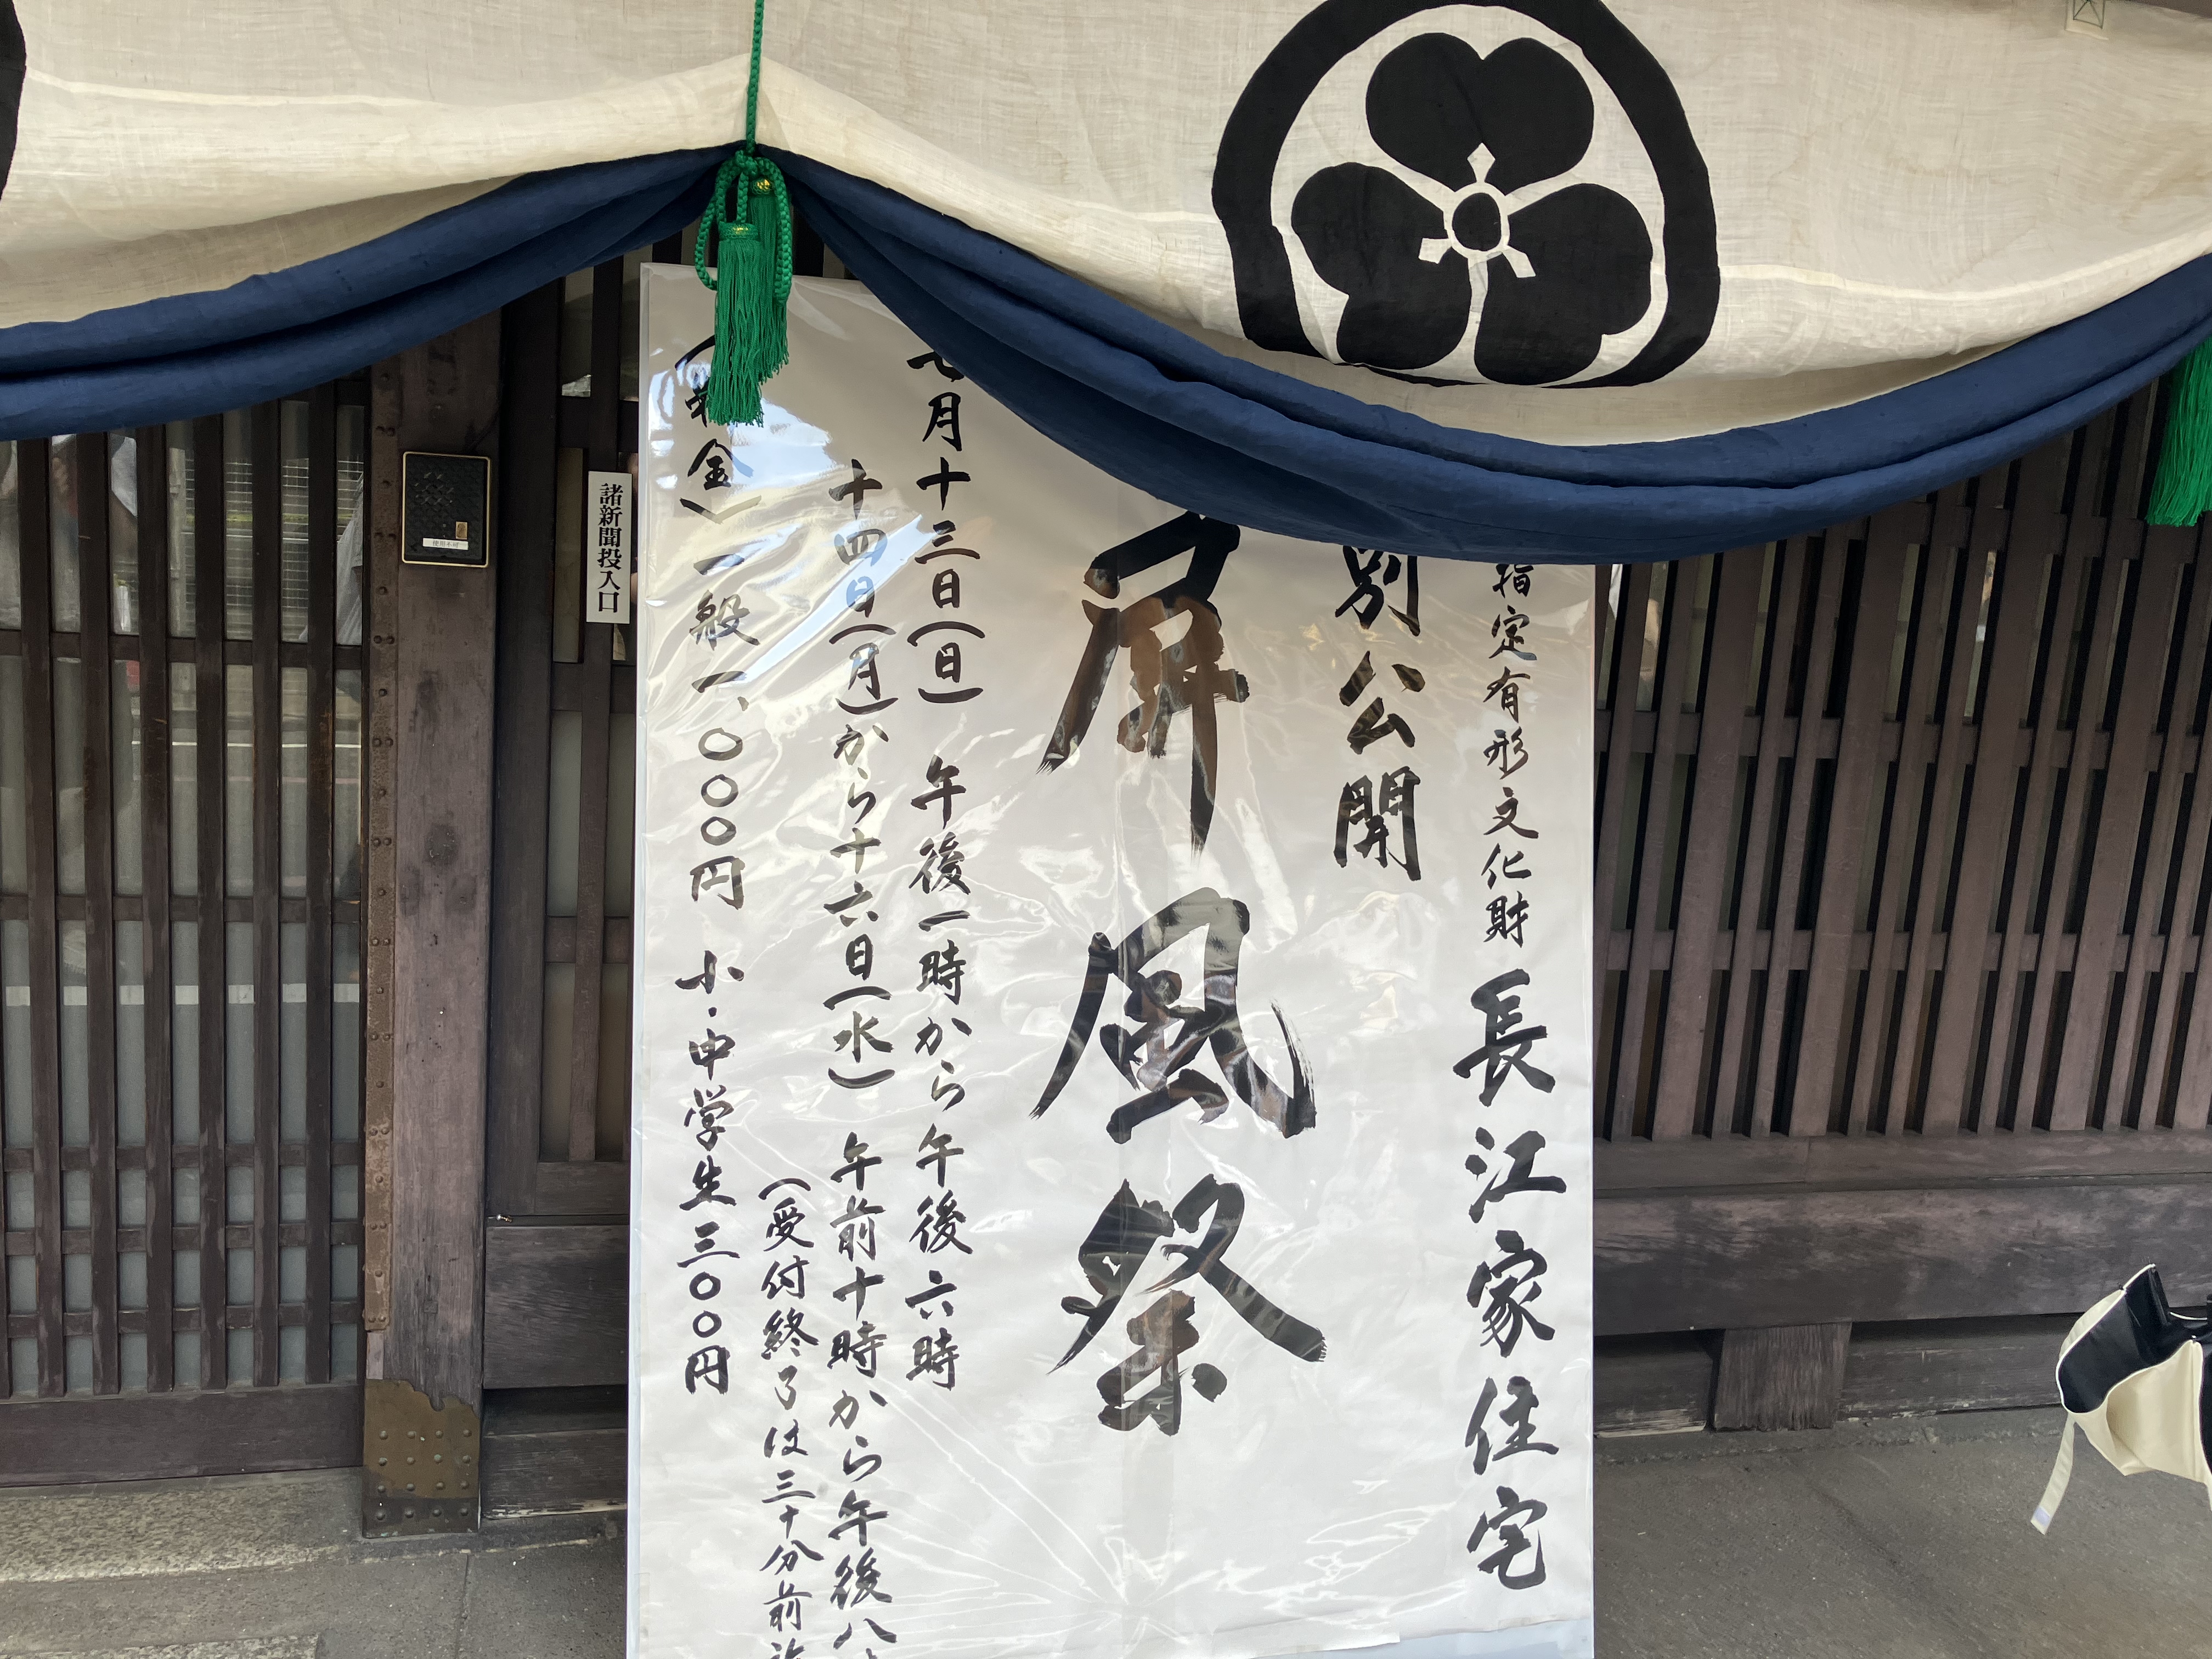 指定有形文化財 長江家住宅
別公開
屏風祭
七月十三日(日) 午後一時から午後六時
十四日(月)から十六日(水) 午前十時から午後八
(受付終了は三十分前
金) 一般一、〇〇〇円 小・中学生三〇〇円
諸新聞投入口
使用不可